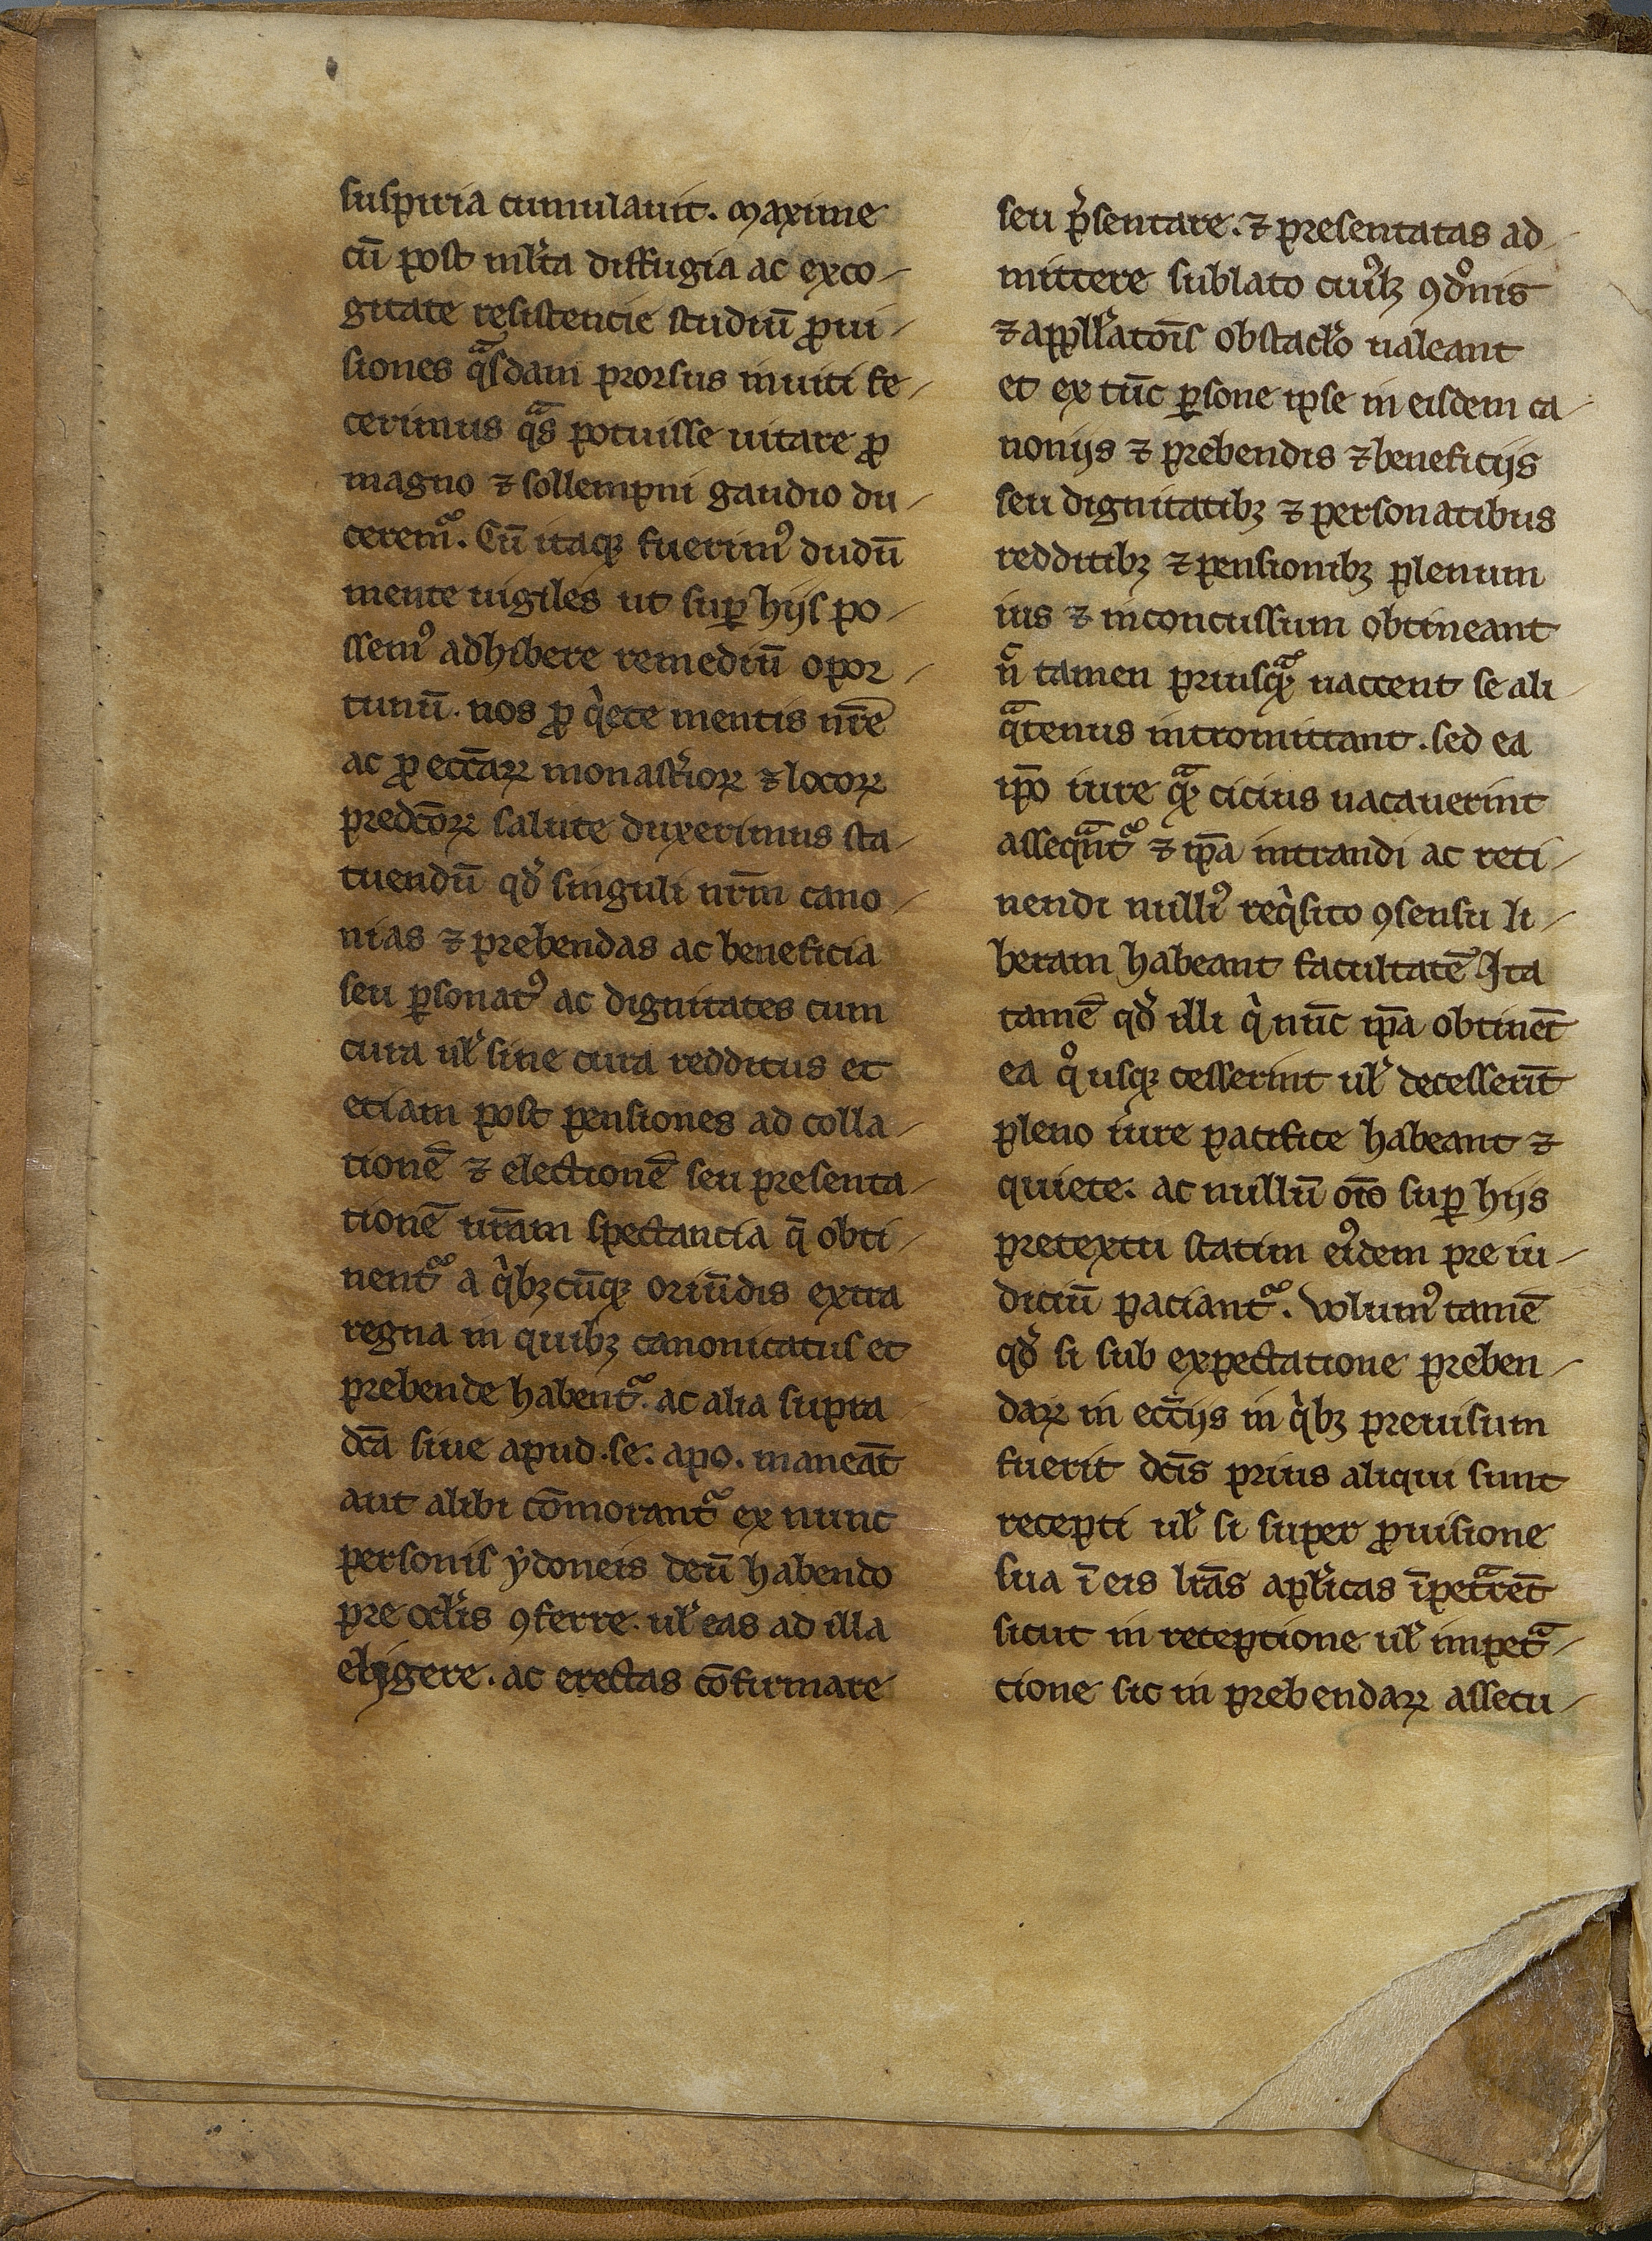 suspiria cumulauit. Maxime
cū post ml̄ta diffugia ac exco-
gitate resistencie studiū ꝓui-
siones qᵃsdam prorsus inuiti fe-
cerimus qᵃs potuisse uitare ꝓ
magno ⁊ sollempni gaudio du-
cerem᷑. Cū itaqꝫ fuerimꝰ dudū
mente uigiles ut suꝑ hijs po-
ssemꝰ adhibere remediū opor-
tunū. nos ꝓ qⁱete mentis nr̄e
ac ꝓ eccarꝝ monastˀioꝝ ⁊ locoꝝ
predcōꝝ salute duxerimus sta-
tuendū qđ singuli ur̄m cano-
nias ⁊ prebendas ac beneficia
seu ꝑsonatꝰ ac dignitates cum
cura ul̓ sine cura redditus et
etiam post pensiones ad colla-
tionē ⁊ electionē seu presenta-
tionē ur̄am spectancia q̄ obti-
nent᷑ a qⁱbꝫcūqꝫ oriūdis extra
regna in quibꝫ canonicatus et
prebende habent᷑. ac alia supra
dc̄a siue apud .se. apo. maneāt
aut alibi cōmorant᷑ ex nunc
personis ydoneis deū habendo
pre ocl̓is ꝯferre. ul̓ eas ad illa
eligere. ac erectas cōfirmare
seu p̄sentare. ⁊ presentatas ad-
mittere sublato cuiꝰlꝫ ꝯdōnis
⁊ appll̓atōis obstacl̓o ualeant
et ex tūc ꝑsone ipse in eisdem ca-
nonijs ⁊ prebendis ⁊ beneficijs
seu dignitatibꝫ ⁊ personatibus
redditibꝫ ⁊ pensionibꝫ plenum
ius ⁊ inconcussum obtineant
n̄ tamen priusqᵃꝫ uaccent se ali-
qᵃtenus intromittant. sed ea
ip̄o iure qᵃꝫ cicius uacauerint
assequᵃnt᷑ ⁊ ip̄a intrandi ac reti-
nendi nulliꝰ reqⁱsito ꝯsensu li-
beram habeant facultatē Ita
tamē qđ illi qⁱ nūc ip̄a obtinēt
ea qᵒusqꝫ cesserint ul̓ decesserīt
pleno iure pacifice habeant ⁊
quiete. ac nullū oīo suꝑ hijs
pretextu statim eiꝰdem preiu-
diciū paciant᷑. Volumꝰ tamē
qđ si sub expectatione preben-
darꝝ in ecc̄ijs in qⁱbꝫ preuisum
fuerit dc̄is prius aliqui sunt
recepti ul̓ si super ꝓuisione
sua ī eis lr̄as apl̓icas īpetᵃrēt
sicut in receptione ul̓ impetᵃ-
tione sic in prebendarꝝ assecu-